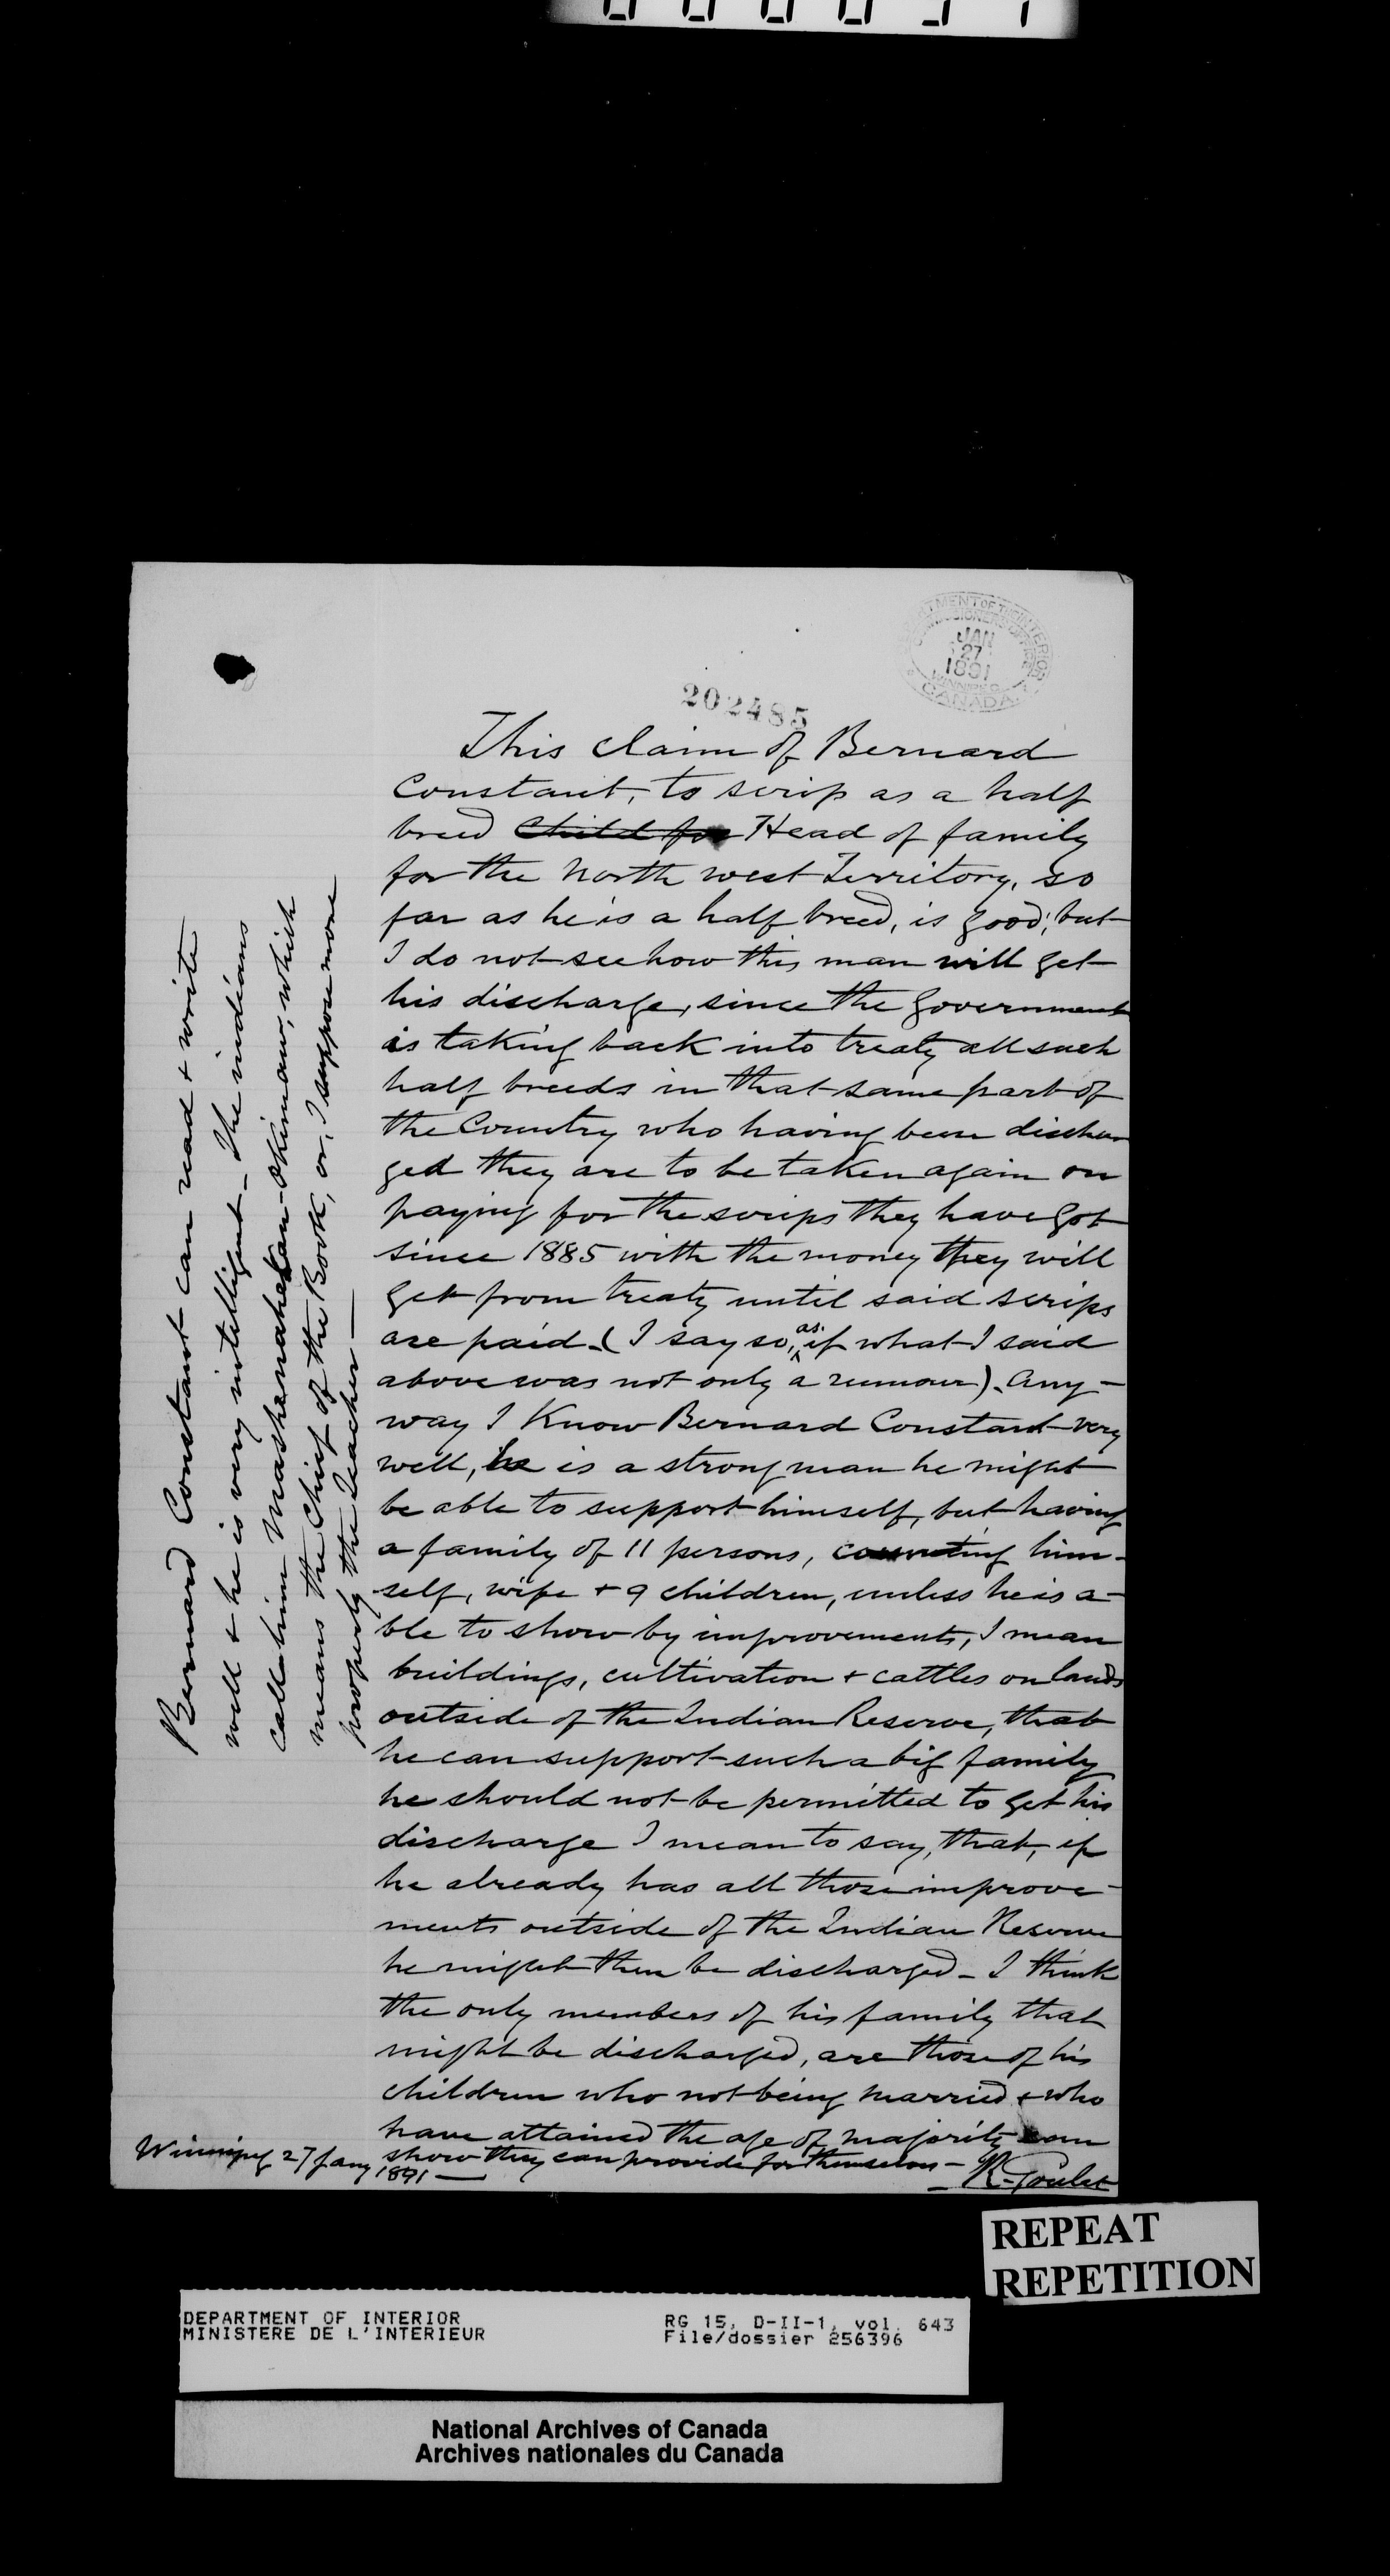 DEPARTMENT OF THE INTERIOR
COMMISSIONER'S OFFICE
JAN
27
1891
WINNIPEG
CANADA
202485
This claim of Bernard
Constant, to scrip as a half
breed Child for Head of family
for the North west Territory, so
far as he is a half breed, is good; but
I do not see how this man will get
his discharge, since the Government
is taking back into treaty all such
half breeds in that same part of
the Country who having been dischar
ged they are to be taken again on
paying for the scrips they have got
since 1885 with the money they will
get from treaty until said scrips
are paid. (I say so, as if what I said
above was not only a rumour). Any-
way I Know Bernard Constant very
well, he is a strong man he might
be able to support himself, but having
a family of 11 persons, counting him-
self, wife + 9 children, unless he is a-
ble to show by improvements, I mean
buildings, cultivation + cattles on lands
outside of the Indian Reserve, that
he can support such a big family
he should not be permitted to get his
discharge I mean to say, that, if
he already has all those improve-
ments outside of the Indian Reserve
he might then be discharged - I think
the only members of his family that
might be discharged, are those of his
children who not being married + who
have attained the age of majority can
show they can provide for themselves -
Winnipeg 27 Jany 1891 —
- R. Goulet
Bernard Constant can read + write
well + he is very intelligent - The indians
call him Mashenahekan-Okimaw, which
means the Chief of the Book, or, I suppose more
properly the Teacher —
REPEAT
REPETITION
DEPARTMENT OF INTERIOR
MINISTERE DE L'INTERIEUR
RG 15, D-II-1, vol. 643
File/dossier 256396
National Archives of Canada
Archives nationales du Canada